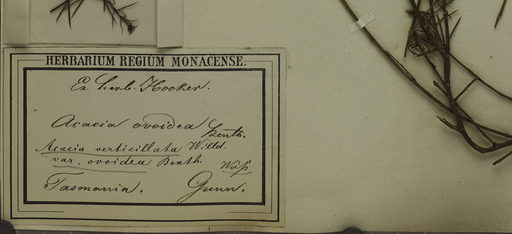 HERBARIUM REGIUM MONACENSE.
Ex herb. Hooker.
Acacia ovoidea Benth.
Acacia verticillata Willd.
var. ovoidea Benth.
Tasmania. Gunn.